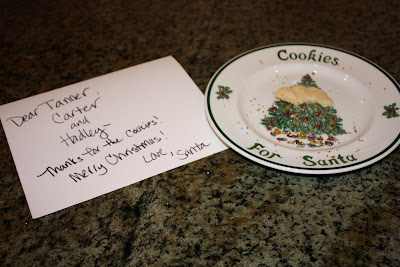 Dear Tanner,
Carter
and
Hadley-
Thanks for the cookies!
Merry Christmas!
Love, Santa
Cookies
For Santa